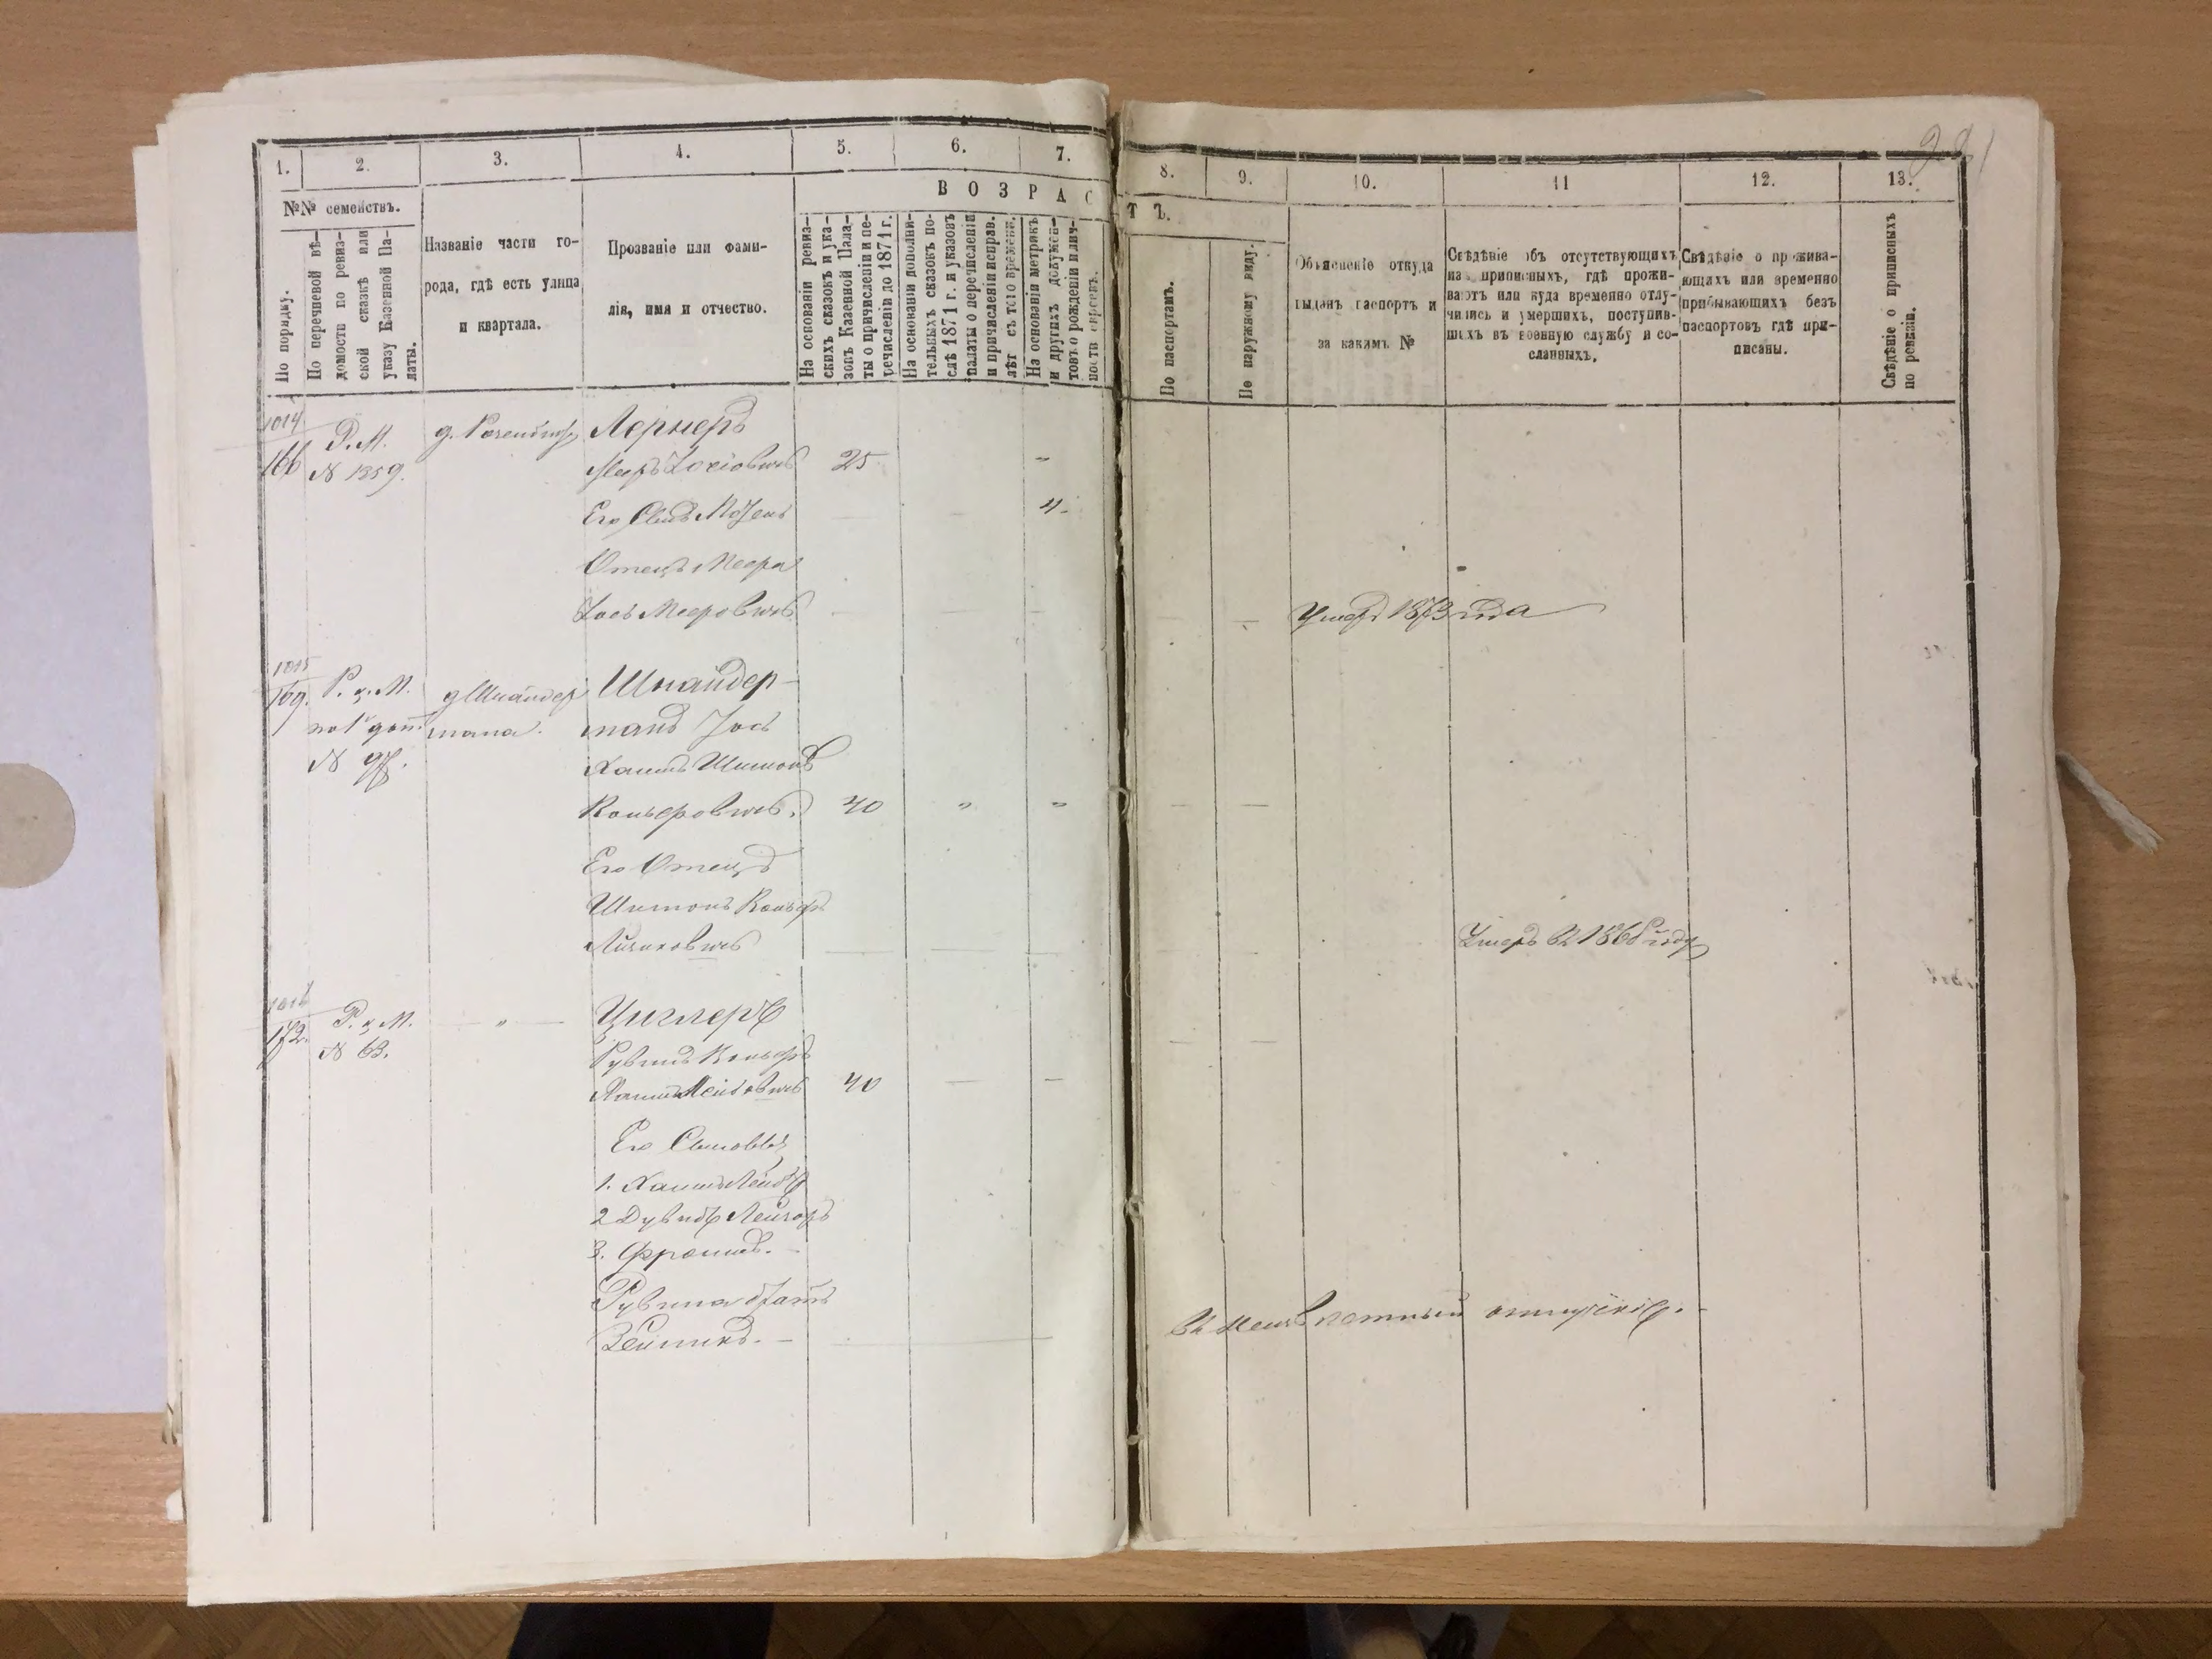 1.
2.
3.
4.
5.
6.
7.
8.
9.
10.
11
12.
13.
№№ семействъ.
По порядку.
По перечневой вѣ-
домости по ревиз-
ской сказкѣ или
указу Казенной Па-
латы.
Названіе части го-
рода, гдѣ есть улица
и квартала.
Прозваніе или фами-
лія, имя и отчество.
ВОЗРАС
ТЪ.
На основаніи ревиз-
скихъ сказокъ и ука-
зовъ Казенной Пала-
ты о причисленіи и пе-
речисленіи до 1871 г.
На основаніи дополни-
тельныхъ сказокъ по-
слѣ 1871 г. и указовъ
палаты о перечисленіи
и причисленіи исправ.
лѣт съ того времени.
На основаніи метрикъ
и другихъ докумен-
товъ о рожденіи и лич-
ности евреевъ.
По паспортамъ.
По наружному виду.
Объясненіе откуда
выданъ паспортъ и
за какимъ №
Свѣдѣніе объ отсутствующихъ
изъ приписныхъ, гдѣ прожи-
ваютъ или куда временно отлу-
чились и умершихъ, поступив-
шихъ въ военную службу и со-
сланныхъ.
Свѣдѣніе о прожива-
ющихъ или временно
прибывающихъ безъ
паспортовъ гдѣ при-
писаны.
Свѣдѣніе о приписныхъ
по ревизіи.
1014
166
Р. М.
N 1359.
Лернеръ
Мееръ Іосіовичъ 25
Его Сынъ 4
Отецъ Меера
Іось Мееровичъ
Умеръ 1873 года
1015
169.
Р. к. М.
N 97.
д Шнайдер
мана.
Шнайдер-
манъ Іось
Хаимъ Шимонъ
40
Его Отецъ
Шимонъ
Умеръ въ 186 году
1016
172.
Р. к. М.
N 63.
Циглеръ
Рувинъ
40
Его Сыновья
1. Хаимъ Лейбъ
2
3. Фроимъ.
Рувина братъ
Зейликъ.